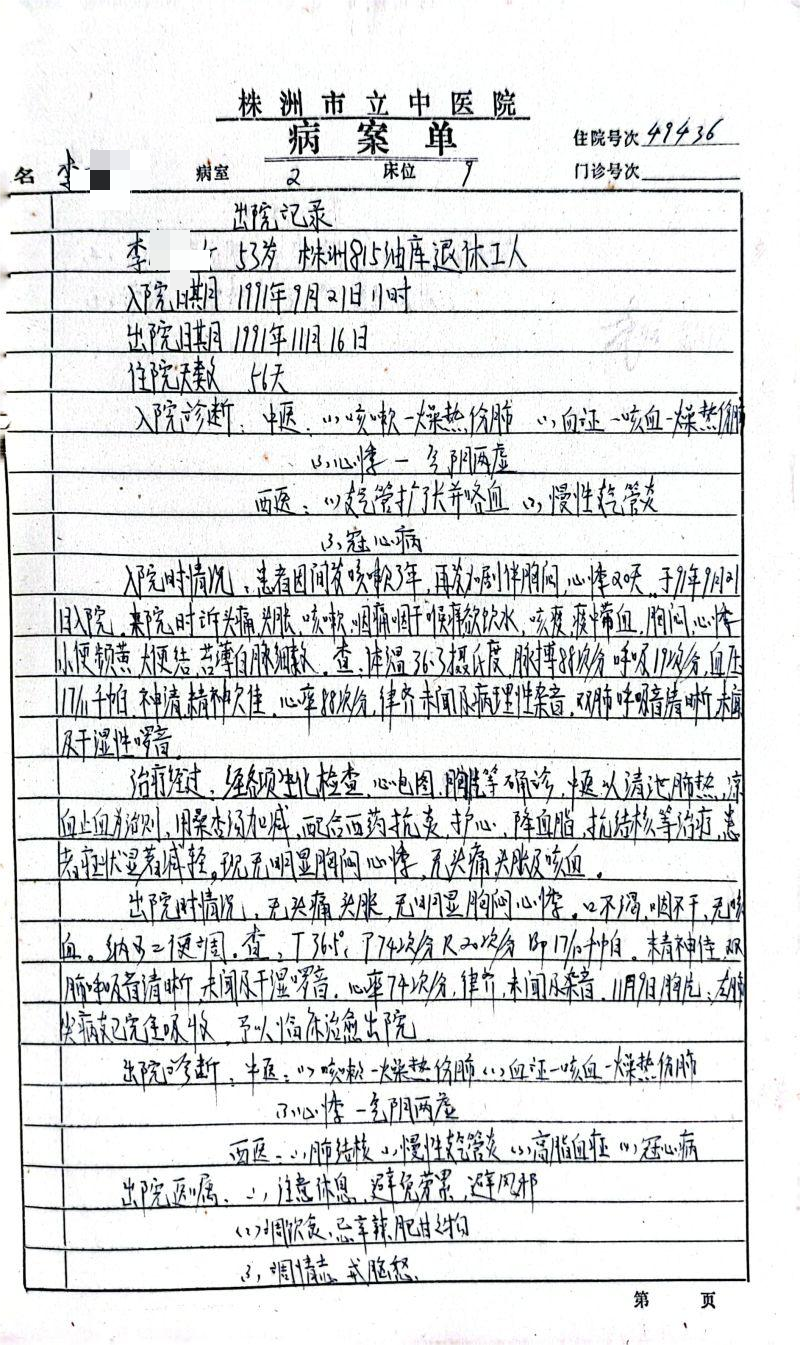 株洲市立中医院
病案单
住院号次 49436
名 李 病室 2 床位 9 门诊号次
出院记录
李 53岁 株洲815油库退休工人
入院日期 1991年9月21日11时
出院日期 1991年11月16日
住院天数 56天
入院诊断：中医：(1)咳嗽—燥热伤肺 (2)血证—咳血—燥热伤肺
(3)心悸—气阴两虚
西医：(1)支气管扩张并咯血 (2)慢性支气管炎
(3)冠心病
入院时情况：患者因间发咳嗽3年，再发加剧伴胸闷，心悸20天，于91年9月21
日入院。来院时诉头痛头胀，咳嗽，咽痛咽干喉痒欲饮水，咳痰，痰中带血，胸闷，心悸
小便频黄，大便结，苔薄白脉细数。查：体温36.3摄氏度，脉搏88次/分 呼吸19次/分，血压
17/11千帕，神清，精神欠佳，心率88次/分，律齐，未闻及病理性杂音，双肺呼吸音清晰，未闻
及干湿性啰音。
治疗经过：经各项生化检查，心电图，胸片等确诊，中医以清泄肺热，凉
血止血为治则，用桑杏汤加减，配合西药抗炎，护心，降血脂，抗结核等治疗，患
者症状显著减轻。现无明显胸闷心悸，无头痛头胀及咳血。
出院时情况：无头痛头胀，无明显胸闷心悸。口不渴，咽不干，无咳
血。纳可二便调。查：T36.5℃ P74次/分 R20次/分 BP17/10千帕。精神佳，双
肺呼吸音清晰，未闻及干湿啰音。心率74次/分，律齐，未闻及杂音。11月9日胸片：左肺
尖病灶已完全吸收。予以临床治愈出院。
出院诊断：中医：(1)咳嗽—燥热伤肺 (2)血证—咳血—燥热伤肺
(3)心悸—气阴两虚
西医：(1)肺结核 (2)慢性支气管炎 (3)高脂血症 (4)冠心病
出院医嘱：(1)注意休息，避免劳累，避风邪
(2)调饮食，忌辛辣，肥甘之物
(3)调情志，戒恼怒
第 页